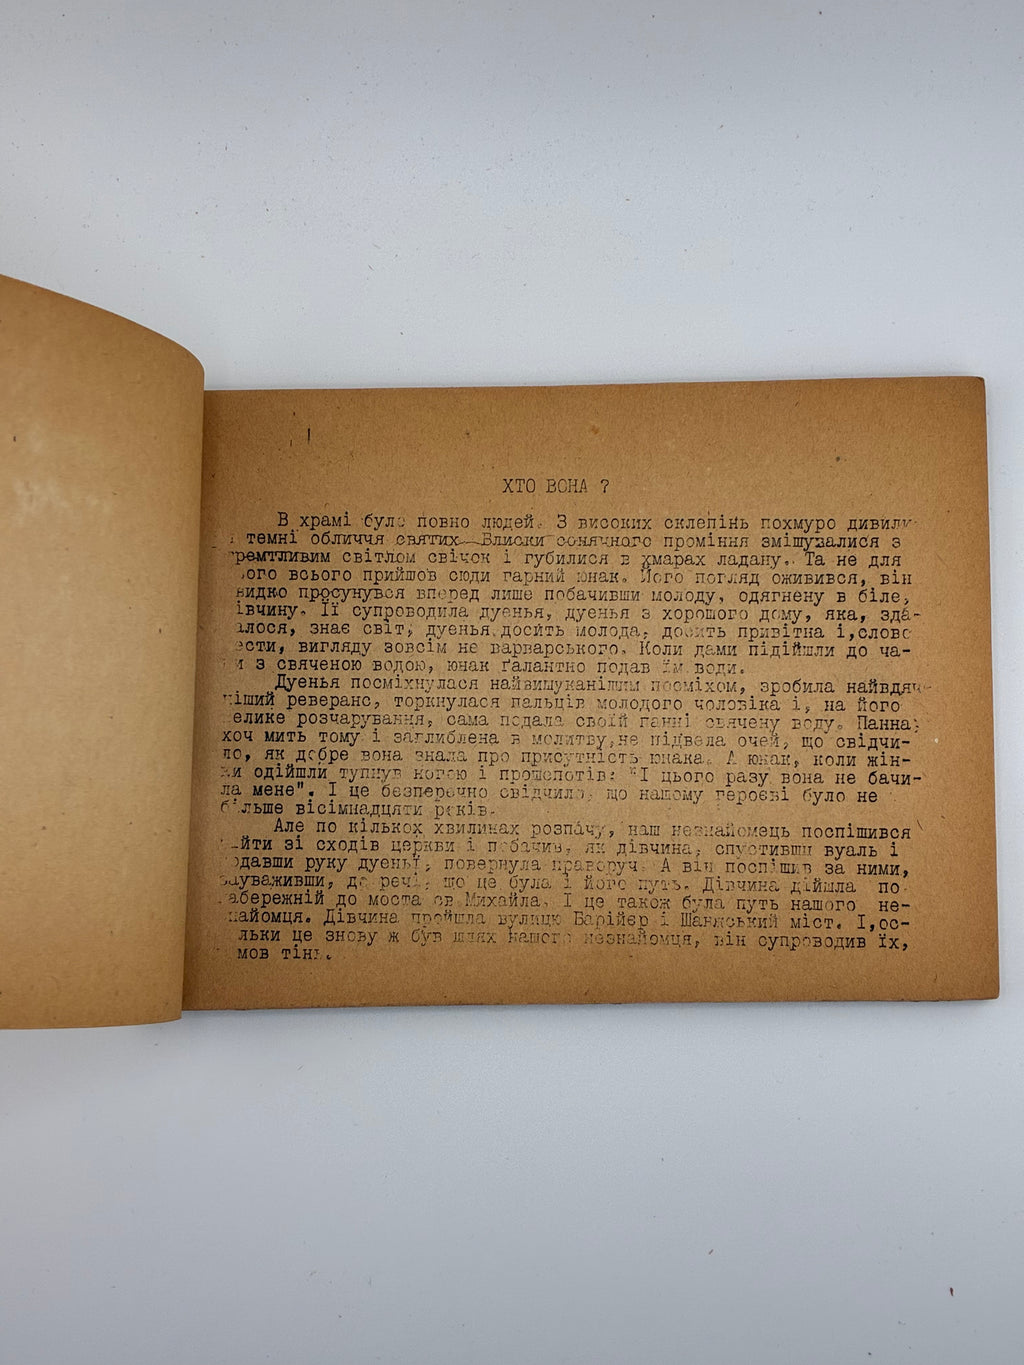 ХТО ВОНА ?
В храмі було повно людей. З високих склепінь похмуро дивили-
темні обличчя святих. Блиски сонячного проміння змішувалися з
тремтливим світлом свічок і губилися в хмарах ладану. Та не для
ього всього прийшов сюди гарний юнак. Його погляд оживився, він
видко просунувся вперед лише побачивши молоду, одягнену в біле,
івчину. Її супроводила дуенья, дуенья з хорошого дому, яка, зда-
алося, знає світ, дуенья досить молода, досить привітна і, слово
ести, вигляду зовсім не варварського. Коли дами підійшли до ча-
и з свяченою водою, юнак ґалантно подав їм води.
Дуенья посміхнулася найвишуканішим посміхом, зробила найвдяч-
ніший реверанс, торкнулася пальців молодого чоловіка і, на його
елике розчарування, сама подала своїй панні свячену воду. Панна,
хоч мить тому і заглиблена в молитву, не підвела очей, що свідчи-
ло, як добре вона знала про присутність юнака. А юнак, коли жін-
ки одійшли тупнув ногою і прошепотів: "І цього разу вона не бачи-
ла мене". І це безперечно свідчило, що нашому героєві було не
більше вісімнадцяти років.
Але по кількох хвилинах розпачу, наш незнайомець поспішився
ійти зі сходів церкви і побачив, як дівчина, спустивши вуаль і
одавши руку дуеньї, повернула праворуч. А він поспішив за ними,
зауваживши, до речі, що це була і його путь. Дівчина дійшла по
абережній до моста св. Михайла. І це також була путь нашого не-
найомця. Дівчина пройшла вулицю Барійєр і Шаняський міст. І, ос-
льки це знову ж був шлях нашого незнайомця, він супроводив їх,
мов тінь.